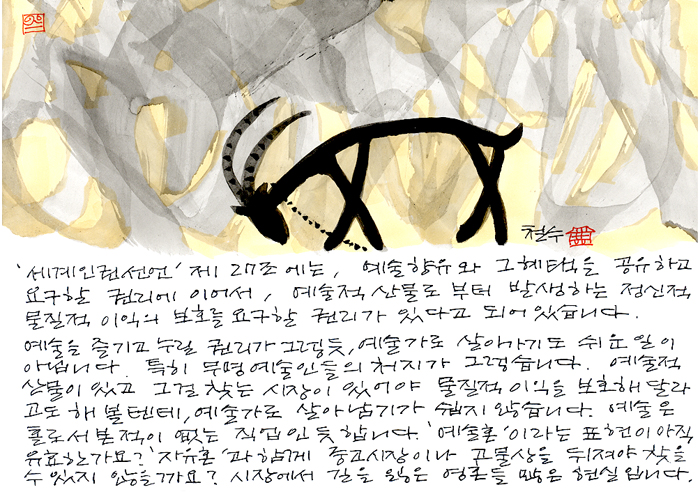 철수
'세계인권선언' 제 27조 에는, 예술향유와 그 혜택을 공유하고
요구할 권리에 이어서, 예술적 산물로 부터 발생하는 정신적
물질적 이익의 보호를 요구할 권리가 있다고 되어있습니다.
예술을 즐기고 누릴 권리가 그렇듯, 예술가로 살아가기도 쉬운 일이
아닙니다. 특히 무명예술인들의 처지가 그렇습니다. 예술적
산물이 있고 그걸 찾는 시장이 있어야 물질적 이익을 보호해 달라
고도 해 볼텐데, 예술가로 살아남기가 쉽지 않습니다. 예술은
홀로서 본적이 없는 직업인 듯 합니다. '예술혼'이라는 표현이 아직
유효한가요? '자유혼'과 함께 중고시장이나 고물상을 뒤져야 찾을
수 있지 않을까요? 시장에서 길을 잃은 영혼들 많은 현실입니다.